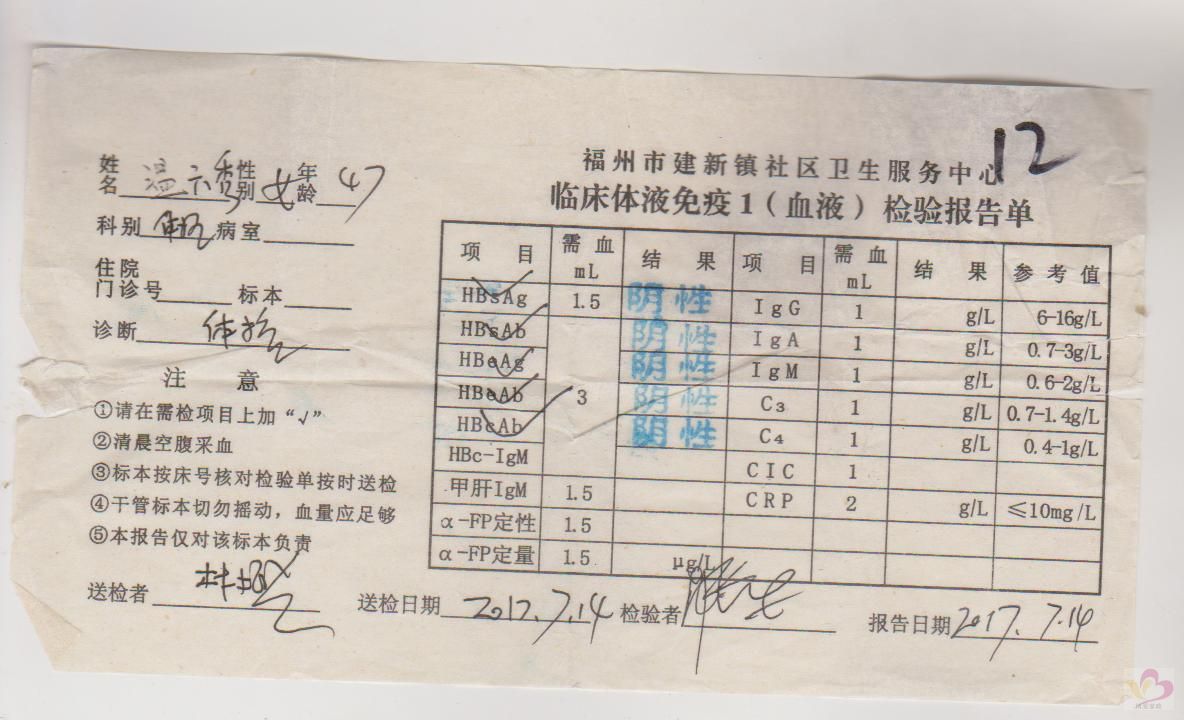 12
福州市建新镇社区卫生服务中心
临床体液免疫1（血液）检验报告单
姓名 性别 女 年龄 47
科别 病室
住院
门诊号 标本
诊断 体检
注 意
①请在需检项目上加“√”
②清晨空腹采血
③标本按床号核对检验单按时送检
④干管标本切勿摇动，血量应足够
⑤本报告仅对该标本负责
项 目 需血mL 结 果 项 目 需血mL 结 果 参考值
HBsAg √ 1.5 阴性 IgG 1 g/L 6-16g/L
HBsAb √ 3 阴性 IgA 1 g/L 0.7-3g/L
HBeAg √ 阴性 IgM 1 g/L 0.6-2g/L
HBeAb √ 阴性 C₃ 1 g/L 0.7-1.4g/L
HBcAb √ 阴性 C₄ 1 g/L 0.4-1g/L
HBc-IgM CIC 1
甲肝IgM 1.5 CRP 2 g/L ≤10mg/L
α-FP定性 1.5
α-FP定量 1.5 μg/L
送检者 送检日期 2017.7.14 检验者 报告日期 2017.7.14